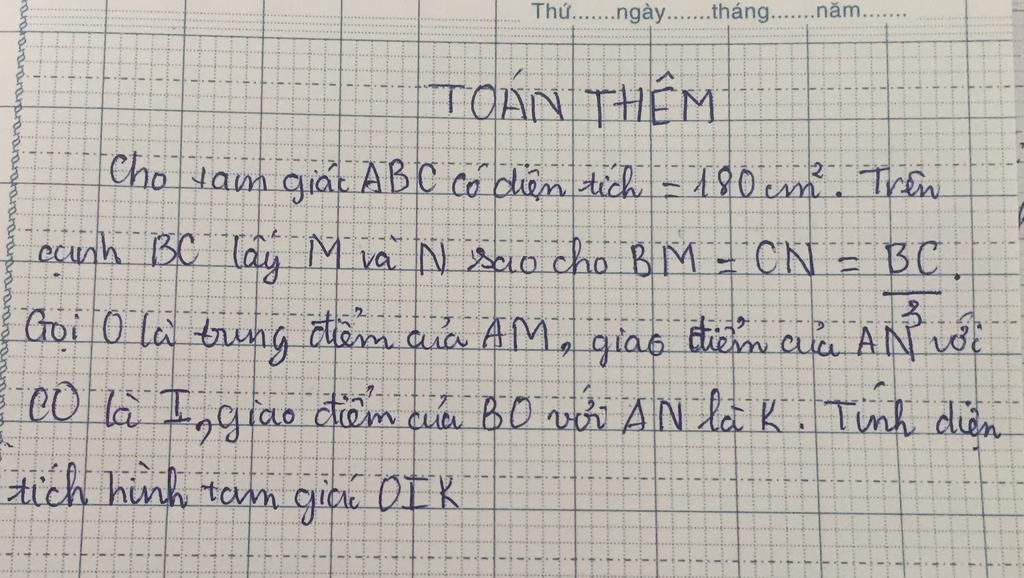 Thứ.......ngày.......tháng.......năm.......
TOÁN THÊM
Cho tam giác ABC có diện tích = 180 cm². Trên
cạnh BC lấy M và N sao cho BM = CN = BC/3.
Gọi O là trung điểm của AM, giao điểm của AN với
CO là I, giao điểm của BO với AN là K. Tính diện
tích hình tam giác OIK